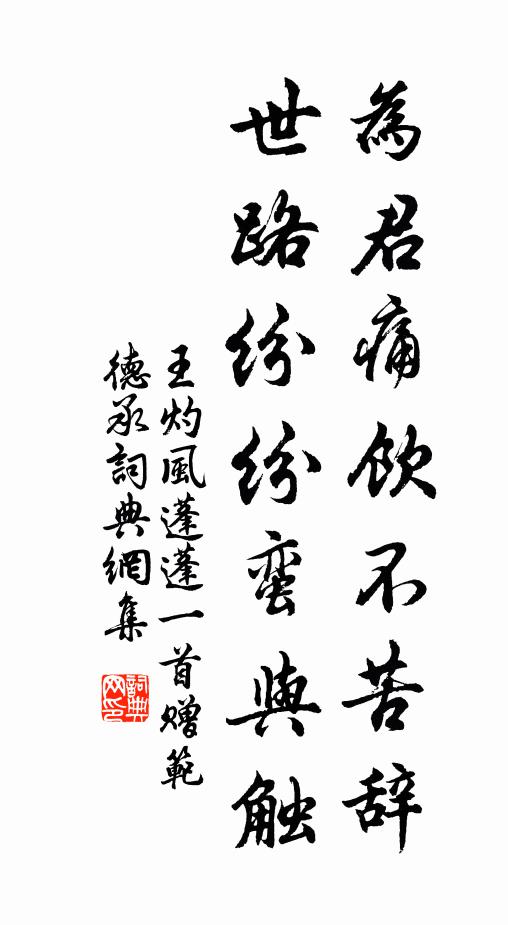 為君痛飲不苦辞
世路紛紛蛮與触
王灼風蓬蓬一首贈範
德承詞典網集
詞典
网印